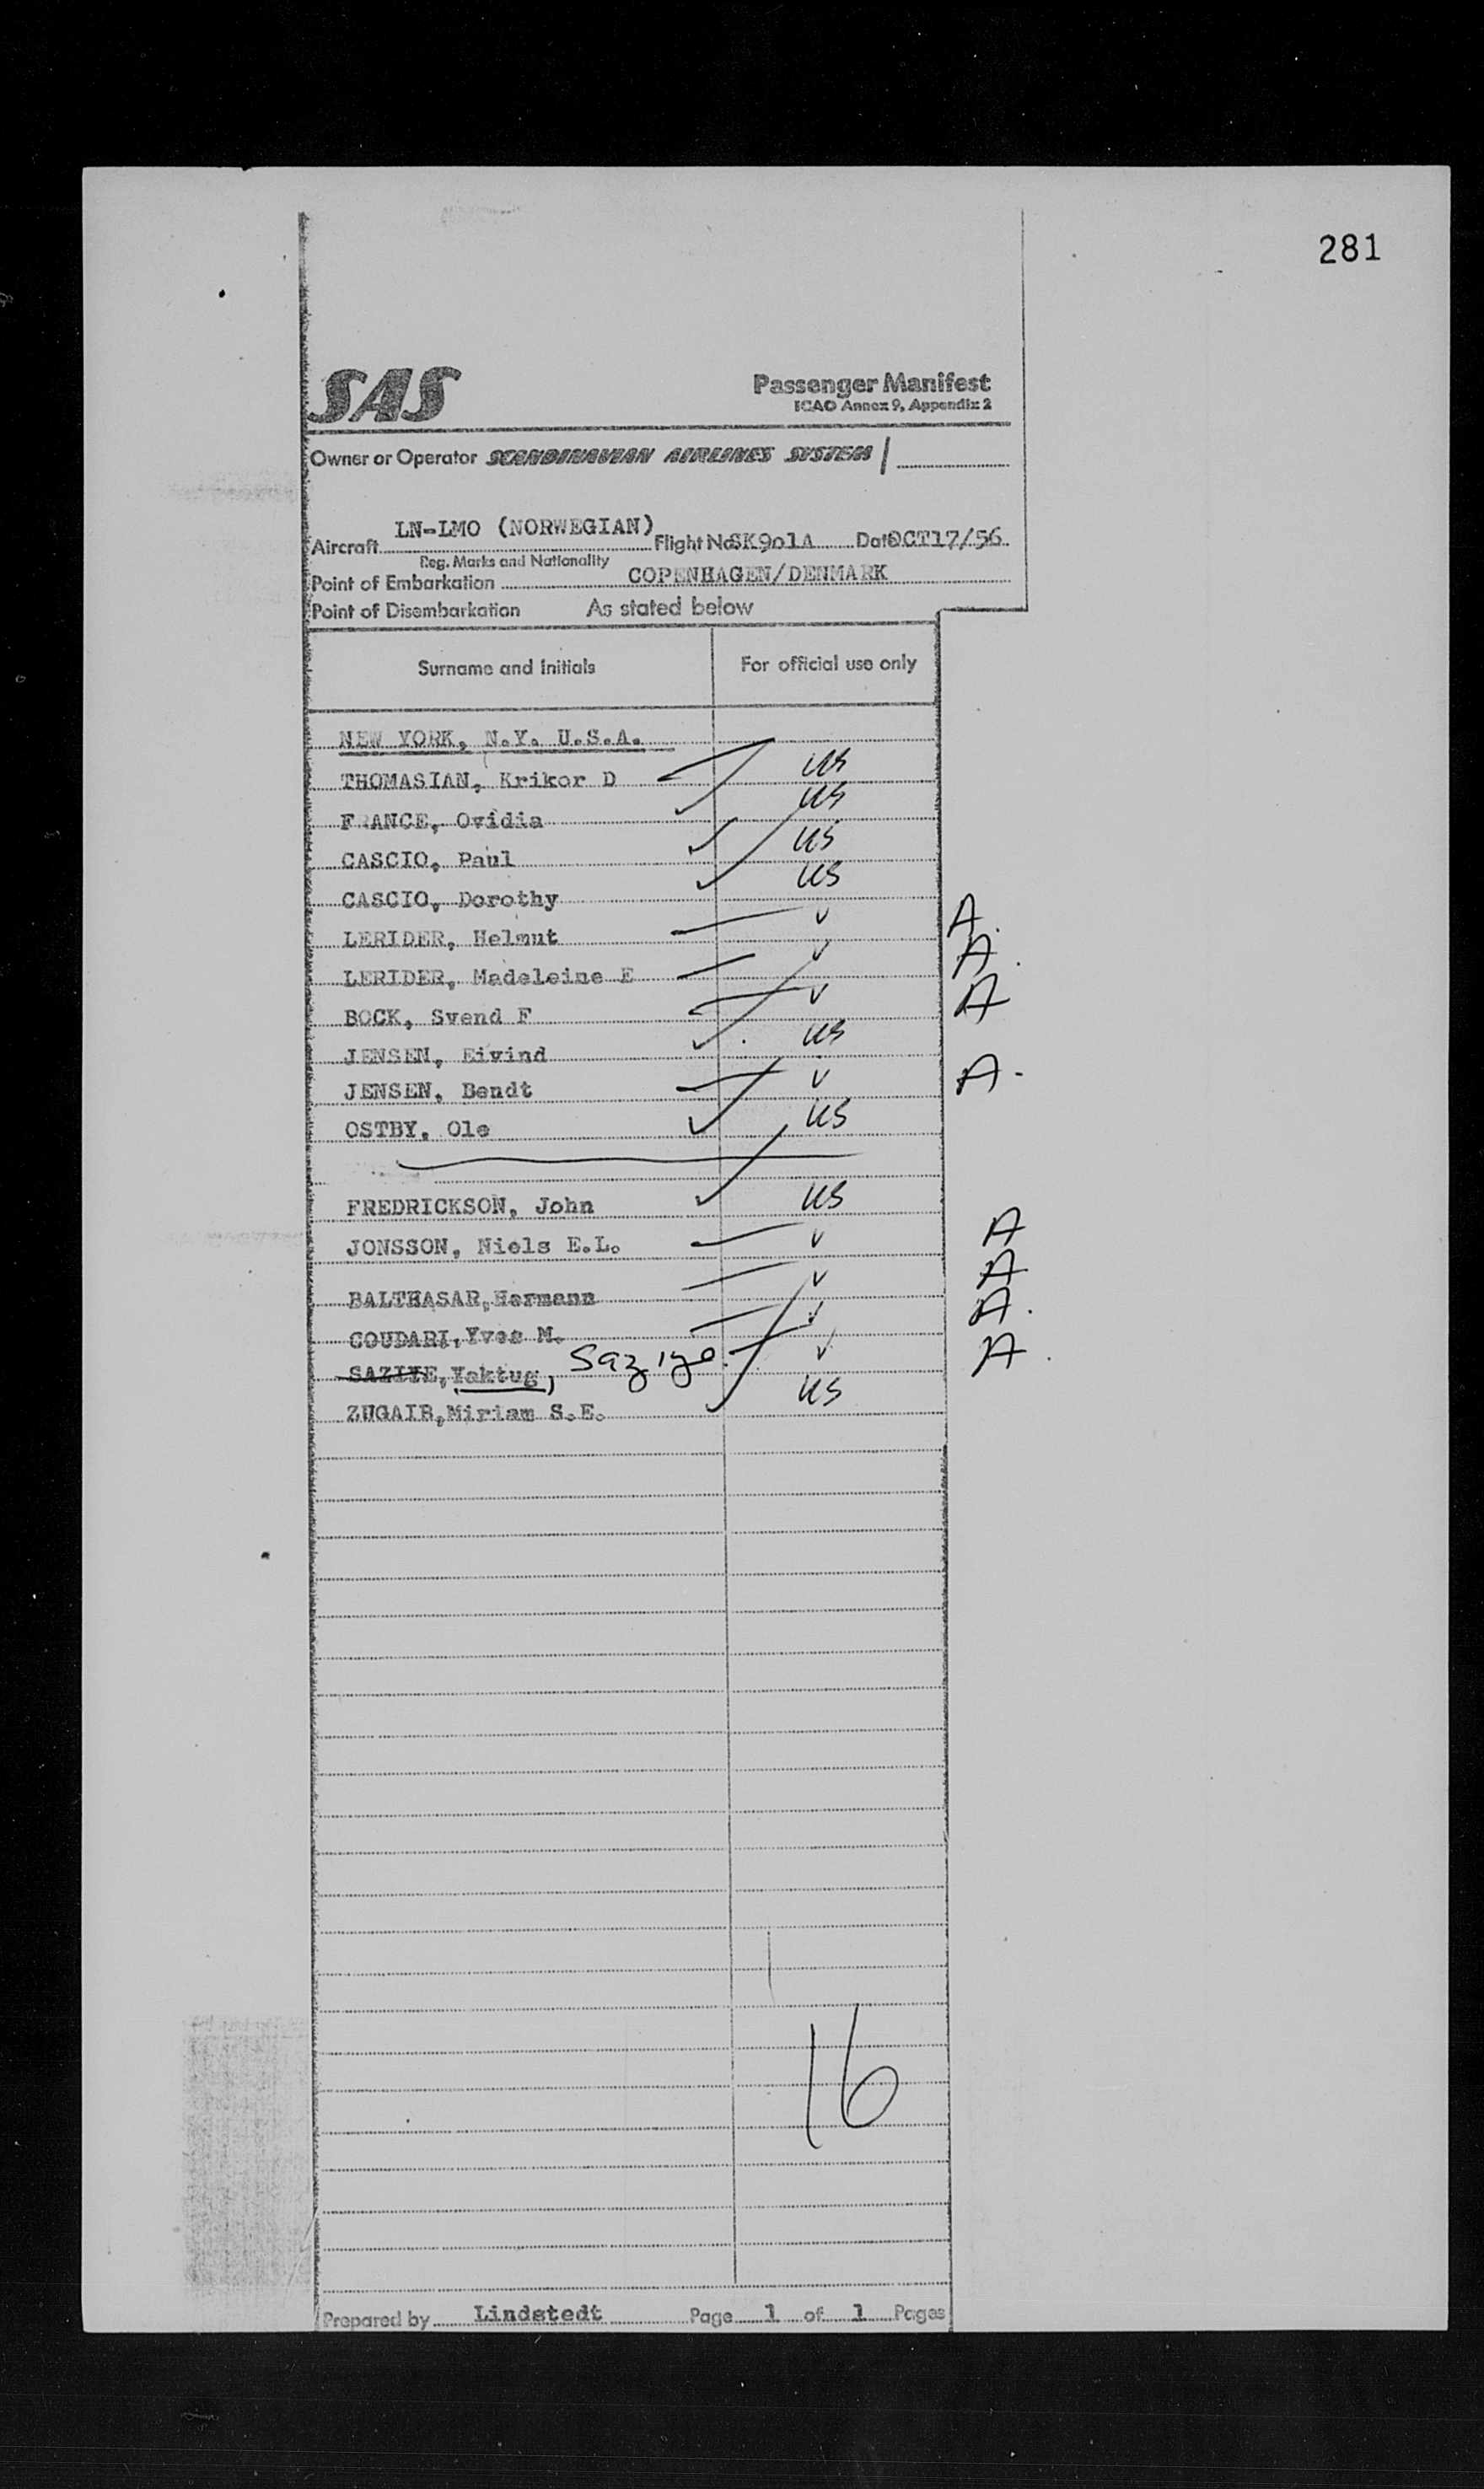 281
SAS
Passenger Manifest
ICAO Annex 9, Appendix 2
Owner or Operator SCANDINAVIAN AIRLINES SYSTEM
Aircraft LN-LMO (NORWEGIAN) Flight No. SK901A Date OCT17/56
Reg. Marks and Nationality
Point of Embarkation COPENHAGEN/DENMARK
Point of Disembarkation As stated below
Surname and Initials For official use only
NEW YORK, N.Y. U.S.A.
THOMASIAN, Krikor D US
FRANCE, Ovidia US
CASCIO, Paul US
CASCIO, Dorothy US
LERIDER, Helmut ✓ A.
LERIDER, Madeleine E ✓ A.
BOCK, Svend F ✓ A
JENSEN, Eivind US
JENSEN, Bendt ✓ A.
OSTBY, Ole US
FREDRICKSON, John US
JONSSON, Niels E.L. ✓ A
BALTHASAR, Hermann ✓ A
COUDARI, Yves M. ✓ A.
SAZIYE, Yaktug, Saziye ✓ A.
ZUGAIB, Miriam S.E. US
16
Prepared by Lindstedt Page 1 of 1 Pages